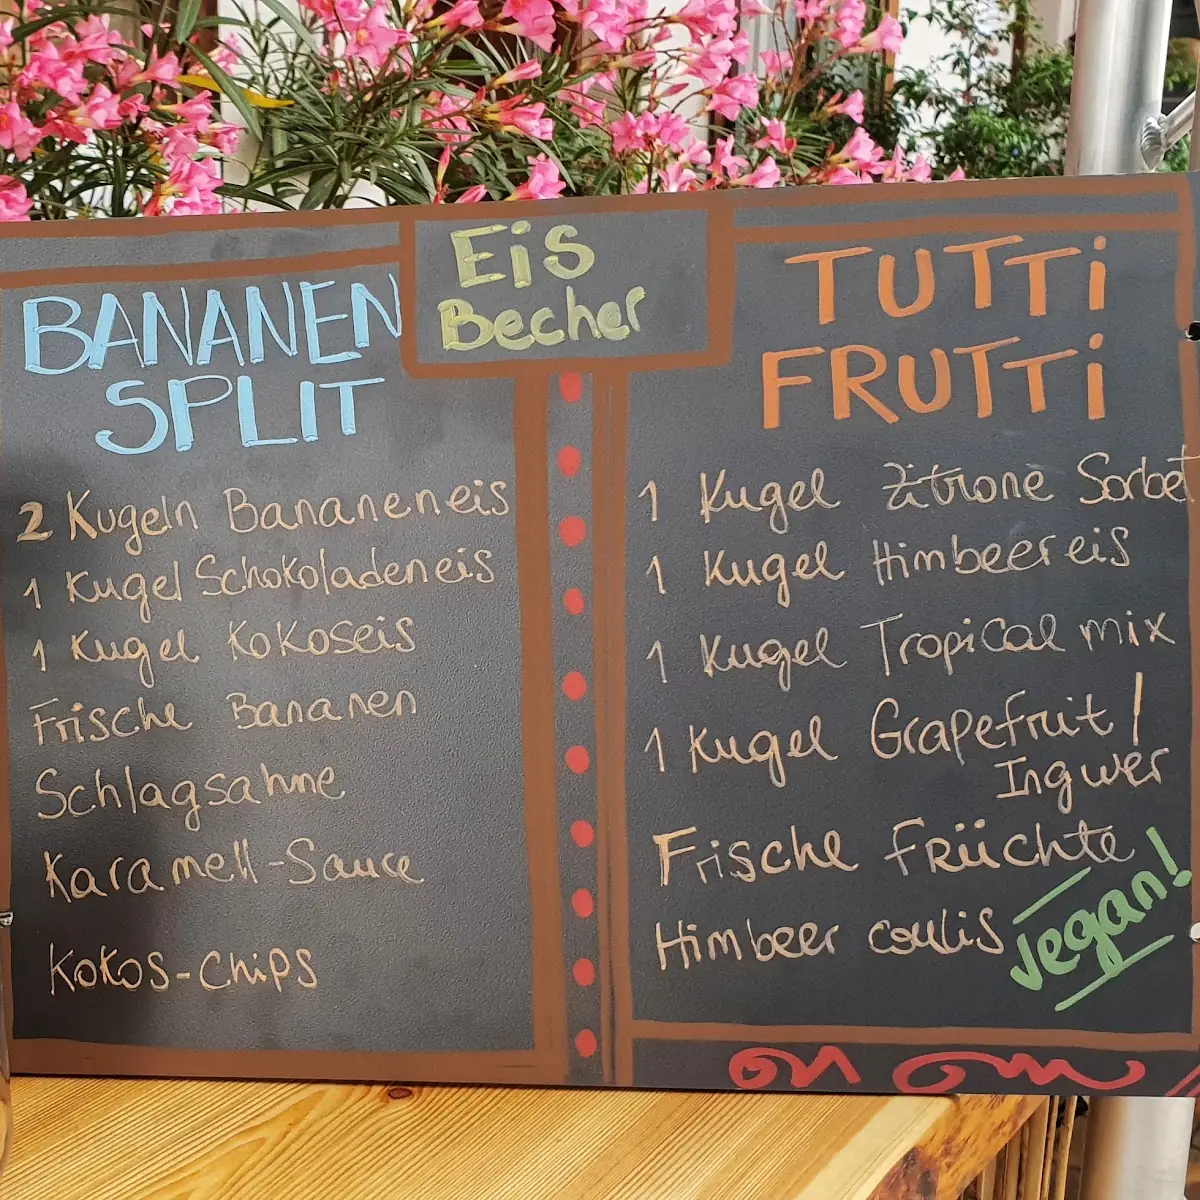 Eis
Becher
BANANEN
SPLIT
2 Kugeln Bananeneis
1 Kugel Schokoladeneis
1 Kugel Kokoseis
Frische Bananen
Schlagsahne
Karamell-Sauce
Kokos-Chips
TUTTi
FRUTTi
1 Kugel Zitrone Sorbet
1 Kugel Himbeereis
1 Kugel Tropical mix
1 Kugel Grapefruit/
Ingwer
Frische Früchte
Himbeer coulis
vegan!